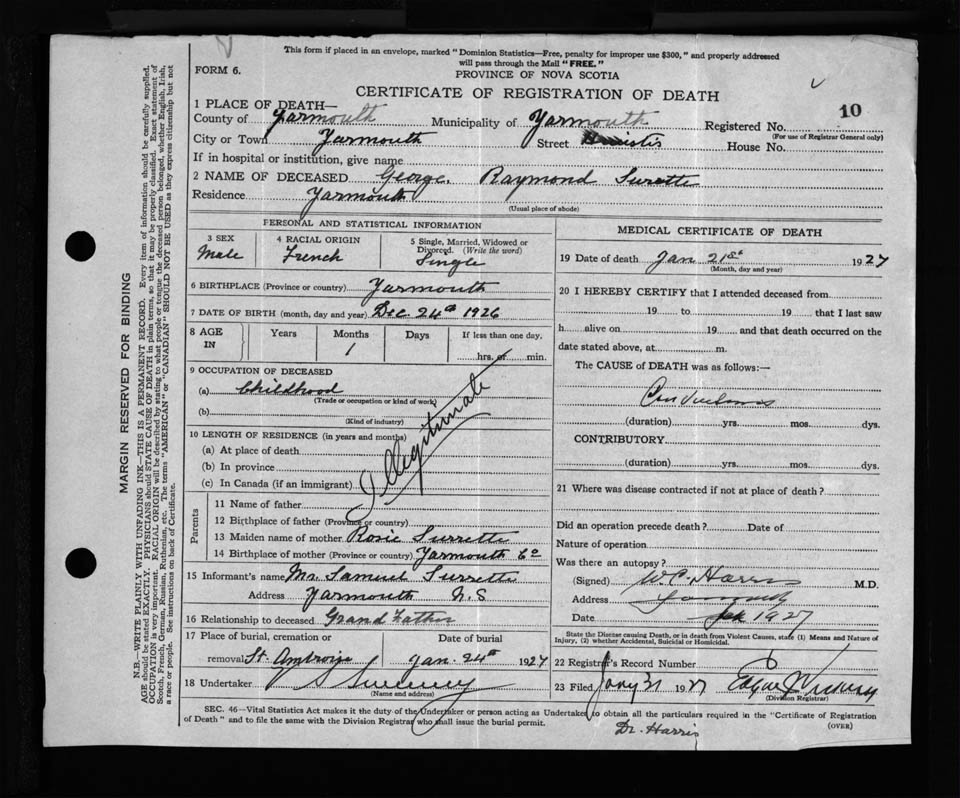 This form if placed in an envelope, marked "Dominion Statistics—Free, penalty for improper use $300," and properly addressed
will pass through the Mail "FREE."
FORM 6.
PROVINCE OF NOVA SCOTIA
CERTIFICATE OF REGISTRATION OF DEATH
10
1 PLACE OF DEATH—
County of Yarmouth Municipality of Yarmouth Registered No.
(For use of Registrar General only)
City or Town Yarmouth Street House No.
If in hospital or institution, give name
2 NAME OF DECEASED George Raymond Surette
Residence Yarmouth
(Usual place of abode)
PERSONAL AND STATISTICAL INFORMATION
3 SEX Male
4 RACIAL ORIGIN French
5 Single, Married, Widowed or Divorced. (Write the word) Single
6 BIRTHPLACE (Province or country) Yarmouth
7 DATE OF BIRTH (month, day and year) Dec 24th 1926
8 AGE IN Years Months Days If less than one day,
1 hrs. or min.
9 OCCUPATION OF DECEASED
(a) Childhood
(Trade or occupation or kind of work)
(b)
(Kind of industry)
Illegitimate
10 LENGTH OF RESIDENCE (in years and months)
(a) At place of death
(b) In province
(c) In Canada (if an immigrant)
Parents
11 Name of father
12 Birthplace of father (Province or country)
13 Maiden name of mother Rosie Surrette
14 Birthplace of mother (Province or country) Yarmouth Co
15 Informant's name Mr. Samuel Surrette
Address Yarmouth N.S
16 Relationship to deceased Grand Father
17 Place of burial, cremation or Date of burial
removal St. Ambroise Jan. 24th 1927
18 Undertaker V S Sweeney
(Name and address)
MEDICAL CERTIFICATE OF DEATH
19 Date of death Jan 21st 1927
(Month, day and year)
20 I HEREBY CERTIFY that I attended deceased from
19 to 19 that I last saw
h alive on 19 and that death occurred on the
date stated above, at m.
The CAUSE OF DEATH was as follows:—
Convulsions
(duration) yrs. mos. dys.
CONTRIBUTORY
(duration) yrs. mos. dys.
21 Where was disease contracted if not at place of death?
Did an operation precede death? Date of
Nature of operation
Was there an autopsy?
(Signed) W.C. Harris M.D.
Address Yarmouth
Date 1927
State the Disease causing Death, or in death from Violent Causes, state (1) Means and Nature of
Injury, (2) whether Accidental, Suicidal or Homicidal.
22 Registrar's Record Number
23 Filed Jany 31 1927 Edgar
(Division Registrar)
SEC. 46—Vital Statistics Act makes it the duty of the Undertaker or person acting as Undertaker to obtain all the particulars required in the "Certificate of Registration
of Death" and to file the same with the Division Registrar who shall issue the burial permit.
(OVER)
Dr. Harris
MARGIN RESERVED FOR BINDING
N.B.—WRITE PLAINLY WITH UNFADING INK—THIS IS A PERMANENT RECORD. Every item of information should be carefully supplied.
AGE should be stated EXACTLY. PHYSICIANS should STATE CAUSE OF DEATH in plain terms, so that it may be properly classified. Exact statement of
OCCUPATION is very important. RACIAL ORIGIN will be described by stating to what people or tongue the deceased person belonged, whether English, Irish,
Scotch, French, German, Russian, Ruthenian, etc. The terms "AMERICAN" or "CANADIAN" SHOULD NOT BE USED as they express citizenship but not
a race or people. See instructions on back of Certificate.